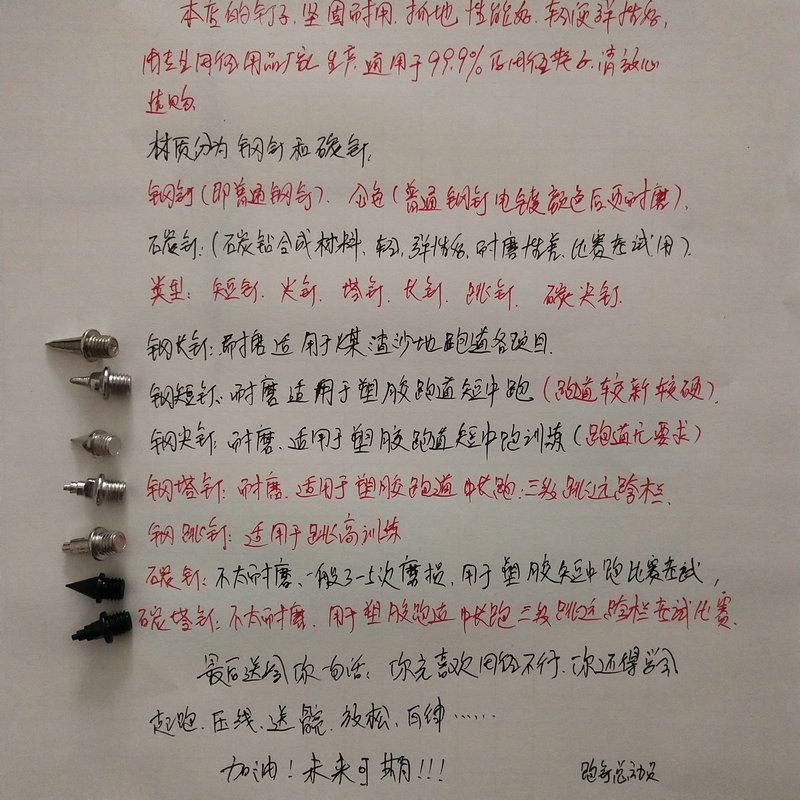 本店的钉子、坚固耐用、抓地性能好、轻便弹性好,
由专业田径用品厂家生产,适用于99.9%后田径类子,请放心
选购
材质分为钢钉和碳钉,
钢钉(即普通钢钉)、仑色(普通钢钉电镀颜色后更耐磨)、
石炭钉:(石炭钻合成材料、轻、弹性好、耐磨性差、比赛考试用)、
类型: 短钉、尖钉、塔钉、长钉、跳钉、碳尖钉
钢长钉:耐磨适用于煤渣沙地跑道各项目.
钢短钉:耐磨适用于塑胶跑道短中跑(跑道较新较硬).
钢尖钉:耐磨、适用于塑胶跑道短中跑训练(跑道无要求)
钢塔钉:耐磨、适用于塑胶跑道中长跑、三级跳远跨栏、
钢跳钉:适用于跳高训练
石炭钉:不太耐磨、一般3-5次磨损,用于塑胶短中跑比赛考试,
碳塔钉:不太耐磨、用于塑胶跑道中长跑三级跳远跨栏考试比赛.
最后送给你一句话:你光喜欢田径不行、你还得学会
起跑、压线、送髋、放松、后伸……
加油!未来可期!!!
跑钉总动员